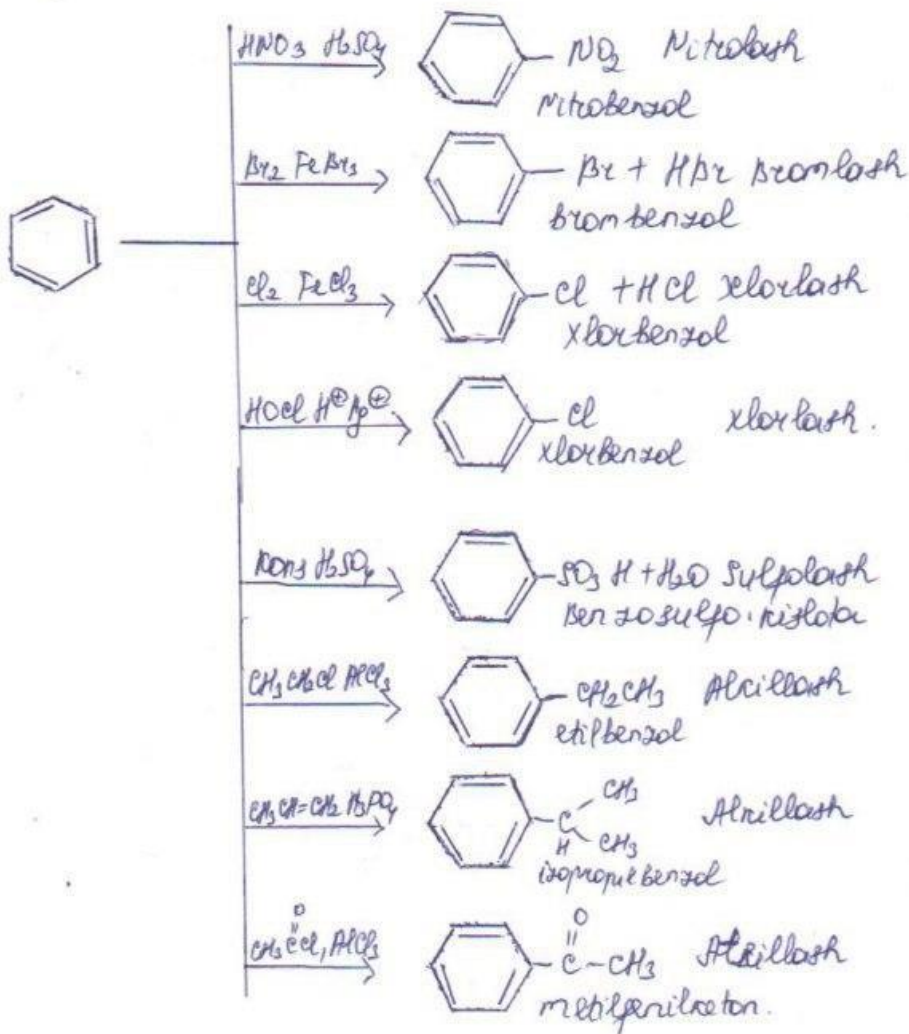 HNO3 H2SO4
NO2 Nitrolash
Nitrobenzol
Br2 FeBr3
Br + HBr Bromlash
brombenzol
Cl2 FeCl3
Cl + HCl Xlorlash
Xlorbenzol
HOCl H⊕ Ag⊕
Cl xlorlash.
xlorbenzol
Kons H2SO4
SO3H + H2O Sulfolash
Benzosulfo.kislota
CH3CH2Cl AlCl3
CH2CH3 Alkillash
etilbenzol
CH3CH=CH2 H3PO4
CH3
C Alkillash
H CH3
izopropilbenzol
O
CH3CCl, AlCl3
O
C-CH3 Alkillash
metilfenilketon.